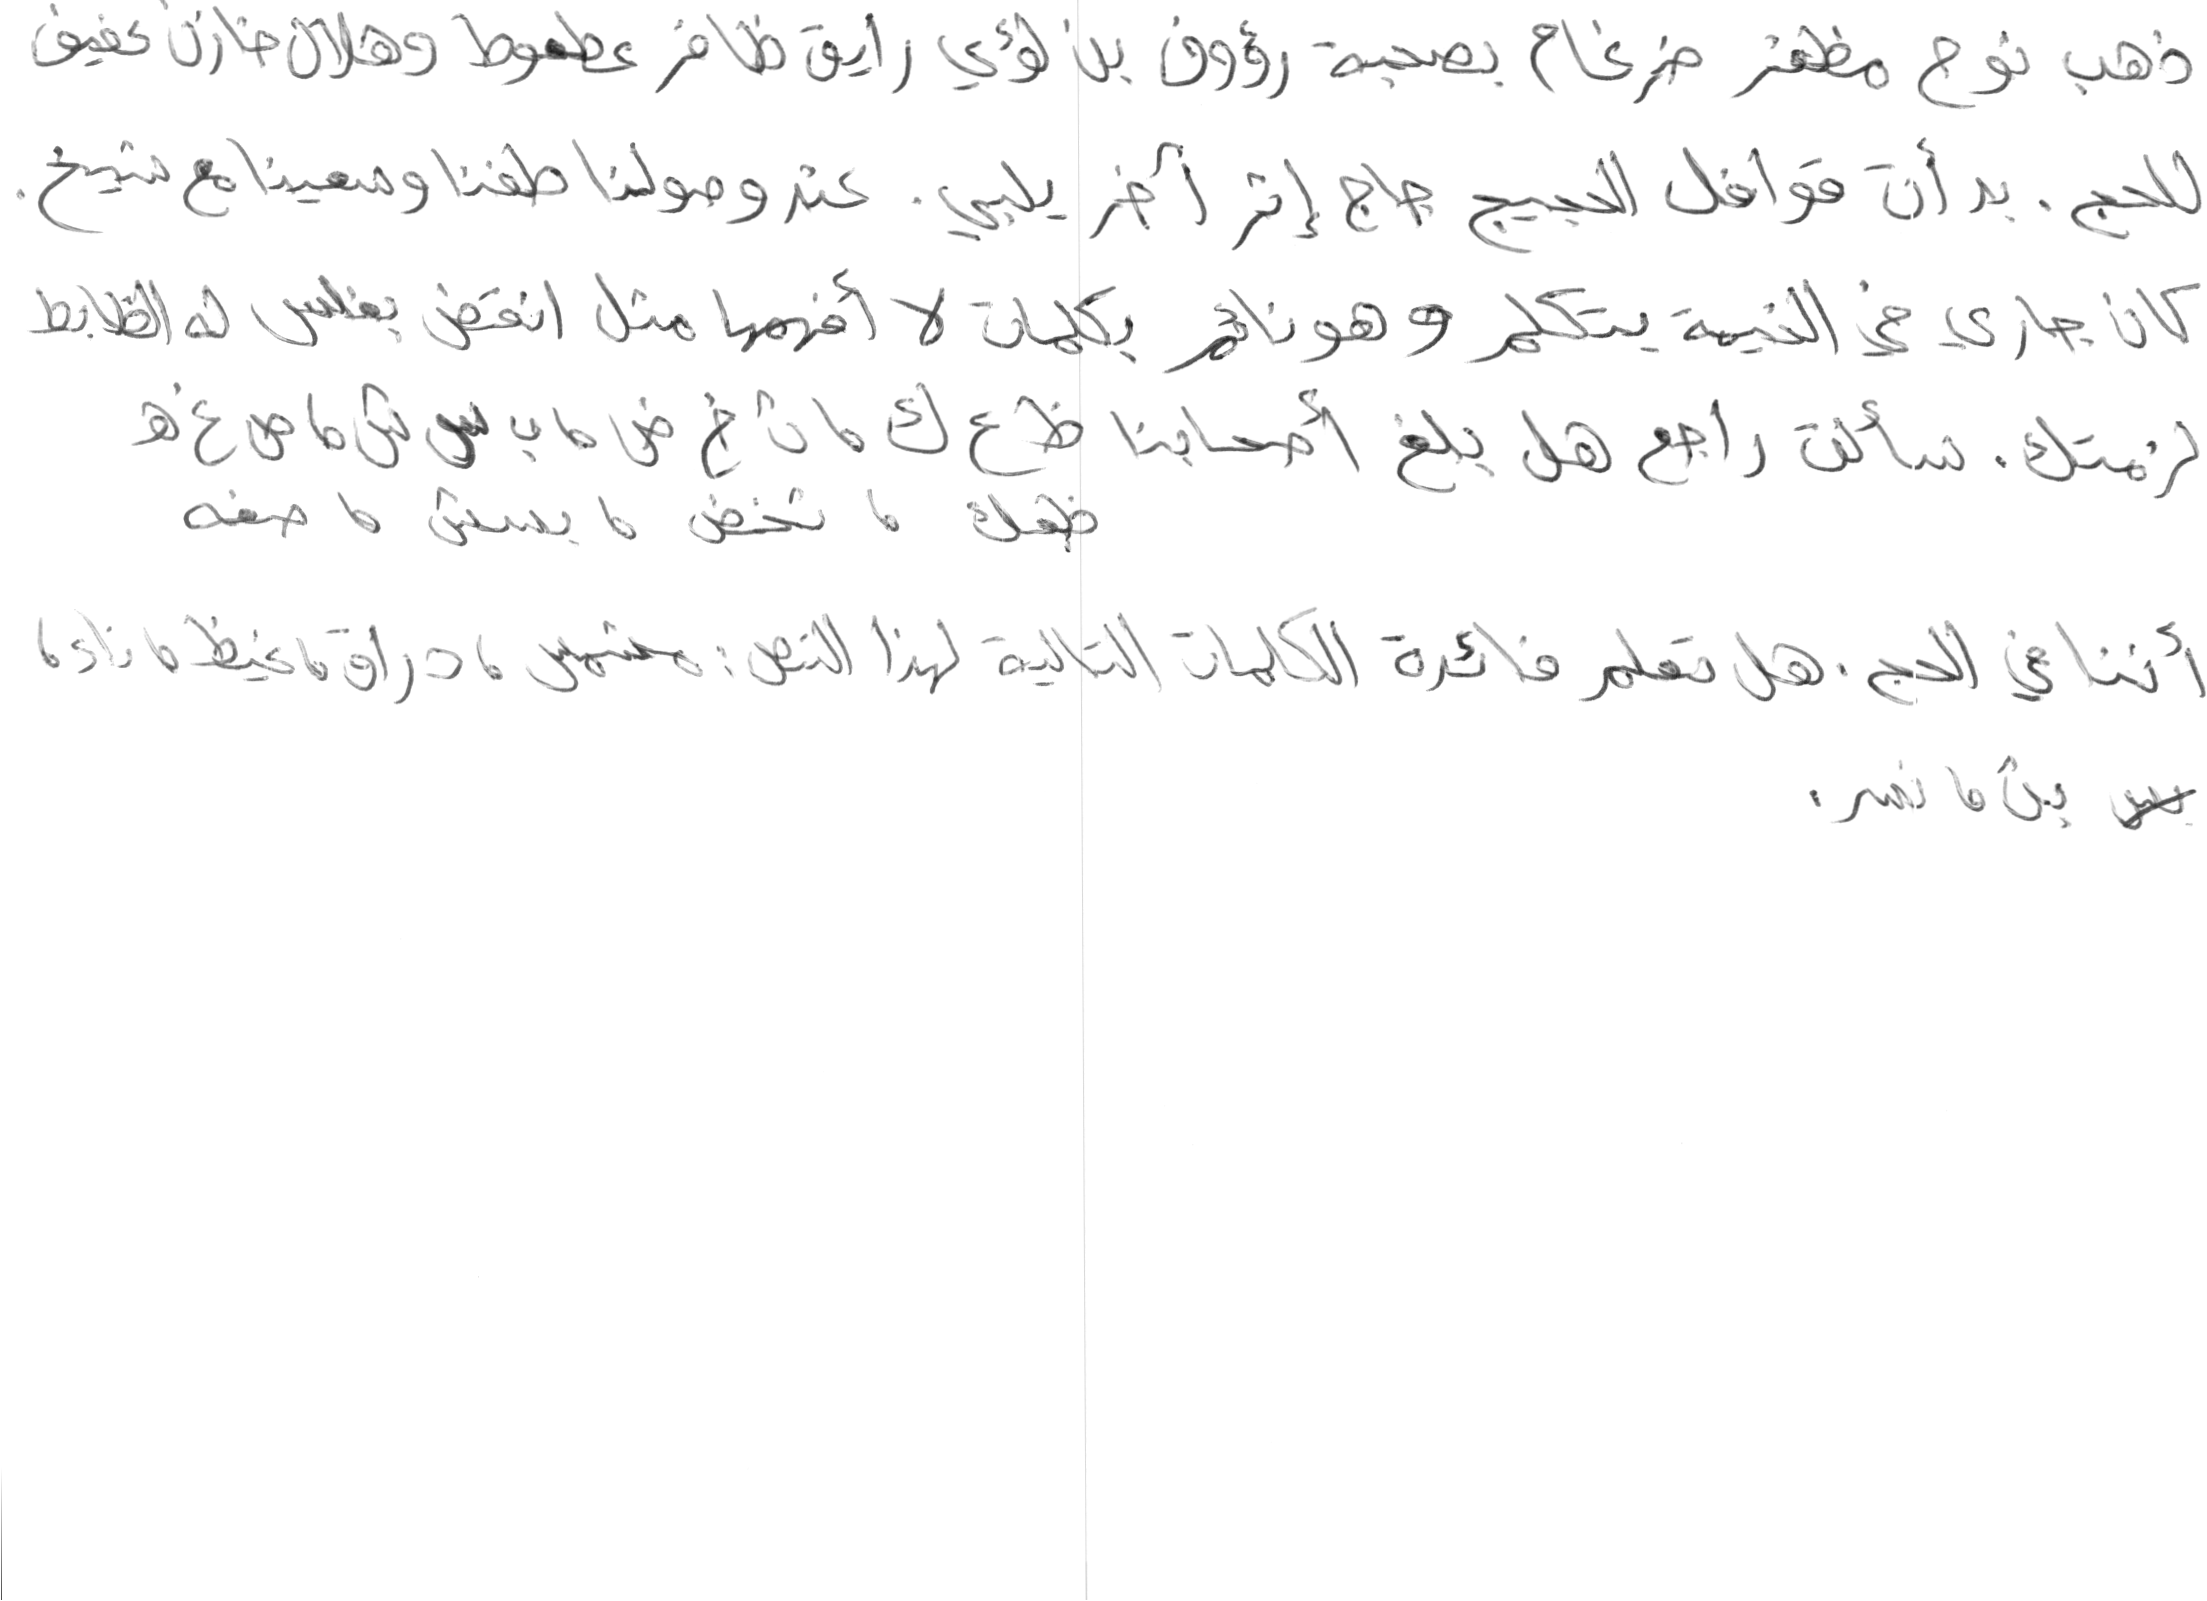 ذهب نوح مظفر ضرغام بصحبة رؤوف بن لؤي رايق ظافر عطعوط وهلال خازن عفيف
للحج. بدأت قوافل الحجيج حاج إثر آخر يلبي. عند وصولنا طفنا وسعينا مع شيخ.
كان جاري في الخيمة يتكلم وهو نائم بكلمات لا أفهمها مثل انقض بغلس له الظابط
لزمتك. سألت راجع هل بلغ أصحابنا ظ ع ك ما ث خ ض ما ب س ش ما ص غ ه
ظعك ما تخض ما بسش ما صغه
أننا في الحج. هل تعلم فائدة الكلمات التالية لهذا النص: مشمس ما دراق ما غيظ ما زاد ما
بين ما نسر.